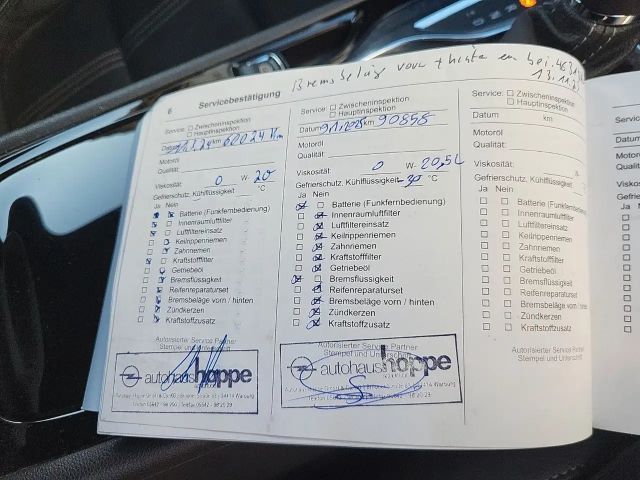 Bremsbeläg vorn + hinten
13.11.
6 Servicebestätigung
Service: □ Zwischeninspektion
□ Hauptinspektion
Datum km 62024 Km
Motoröl
Qualität:
Viskosität: 0 W- 20
Gefrierschutz, Kühlflüssigkeit °C
Ja Nein
Batterie (Funkfernbedienung)
Innenraumluftfilter
Luftfiltereinsatz
Keilrippenriemen
Zahnriemen
Kraftstofffilter
Getriebeöl
Bremsflüssigkeit
Reifenreparaturset
Bremsbeläge vorn / hinten
Zündkerzen
Kraftstoffzusatz
Autorisierter Service Partner
Stempel und Unterschrift
autohaus hoppe
Service: □ Zwischeninspektion
□ Hauptinspektion
Datum 9.1.2025 km 90858
Motoröl
Qualität:
Viskosität: 0 W- 20,5L
Gefrierschutz, Kühlflüssigkeit -30 °C
Ja Nein
Batterie (Funkfernbedienung)
Innenraumluftfilter
Luftfiltereinsatz
Keilrippenriemen
Zahnriemen
Kraftstofffilter
Getriebeöl
Bremsflüssigkeit
Reifenreparaturset
Bremsbeläge vorn / hinten
Zündkerzen
Kraftstoffzusatz
Autorisierter Service Partner
Stempel und Unterschrift
autohaus hoppe
34414 Warburg
Service: □ Zwischeninspektion
□ Hauptinspektion
Datum km
Motoröl
Qualität:
Viskosität: W-
Gefrierschutz, Kühlflüssigkeit °C
Ja Nein
□ □ Batterie (Funkfernbedienung)
□ □ Innenraumluftfilter
□ □ Luftfiltereinsatz
□ □ Keilrippenriemen
□ □ Zahnriemen
□ □ Kraftstofffilter
□ □ Getriebeöl
□ □ Bremsflüssigkeit
□ □ Reifenreparaturset
□ □ Bremsbeläge vorn / hinten
□ □ Zündkerzen
□ □ Kraftstoffzusatz
Autorisierter Service Partner
Stempel und Unterschrift
Service:
Datum
Motoröl
Qualität:
Viskosität
Ja Nein